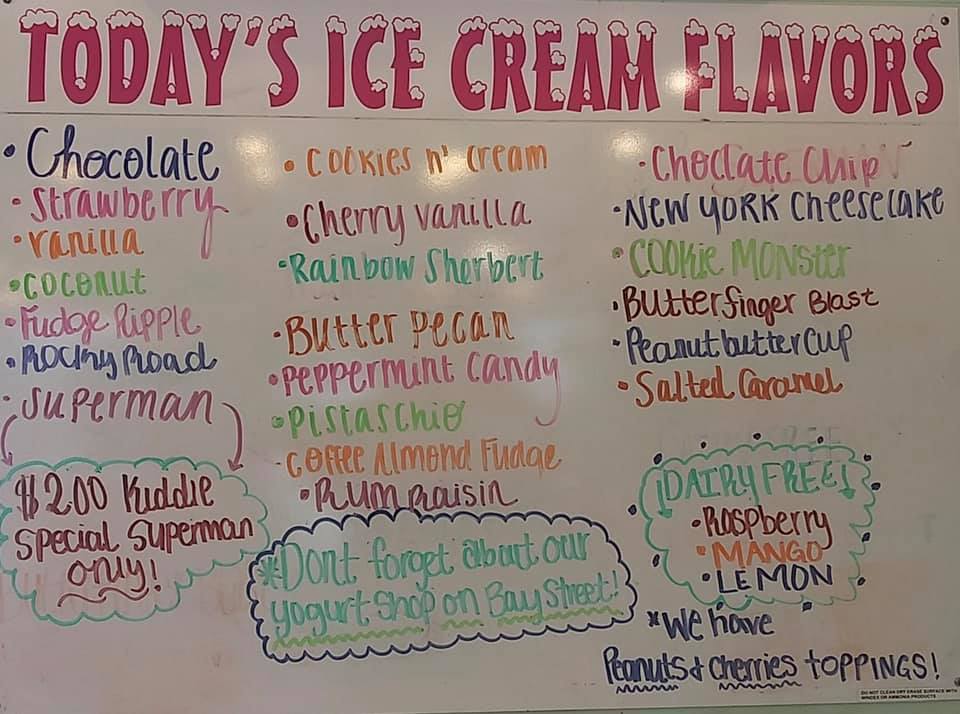 TODAY'S ICE CREAM FLAVORS
• Chocolate
• Strawberry
• Vanilla
• Coconut
• Fudge Ripple
• Rocky Road
• Superman
$2.00 Kiddie
Special Superman
only!
• Cookies n' Cream
• Cherry Vanilla
• Rainbow Sherbert
• Butter Pecan
• Peppermint Candy
• Pistaschio
• Coffee Almond Fudge
• Rum Raisin
*Dont forget about our
yogurt shop on Bay Street!
• Choclate Chip
• New York Cheesecake
• Cookie Monster
• Butterfinger Blast
• Peanut butter Cup
• Salted Caramel
DAIRY FREE!
• Raspberry
• MANGO
• LEMON
*We have
Peanuts & Cherries TOPPINGS!
DO NOT CLEAN DRY ERASE SURFACE WITH
WINDEX OR AMMONIA PRODUCTS